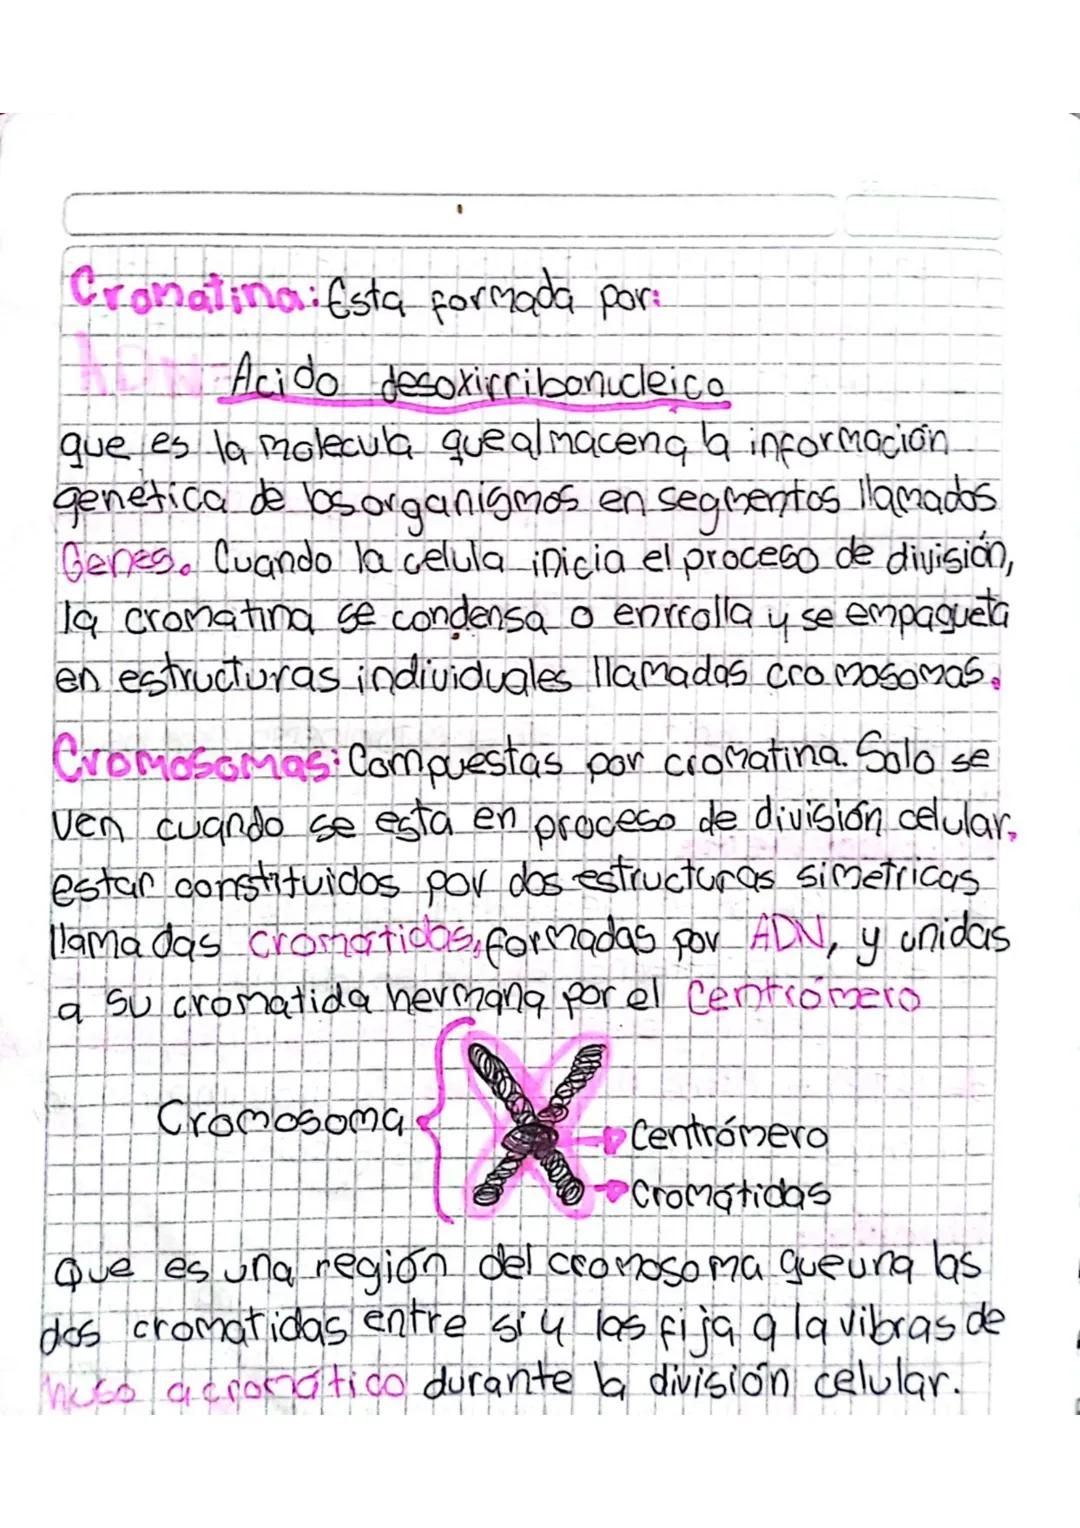 Cromatina: Esta formada por:
ADN: Acido desoxirribonucleico
que es la molecula que almacena la información
genética de los organismos en segmentos llamados
Genes. Cuando la celula inicia el proceso de división,
la cromatina se condensa o enrrolla y se empaqueta
en estructuras individuales llamadas cromosomas.
Cromosomas: Compuestas por cromatina. Solo se
ven cuando se esta en proceso de división celular,
estan constituidos por dos estructuras simetricas
llamadas cromatidas, formadas por ADN, y unidas
a su cromatida hermana por el Centrómero
Cromosoma
Centrómero
Cromátidas
que es una región del cromosoma que una las
dos cromatidas entre si y las fija a la vibras de
huso acromático durante la división celular.